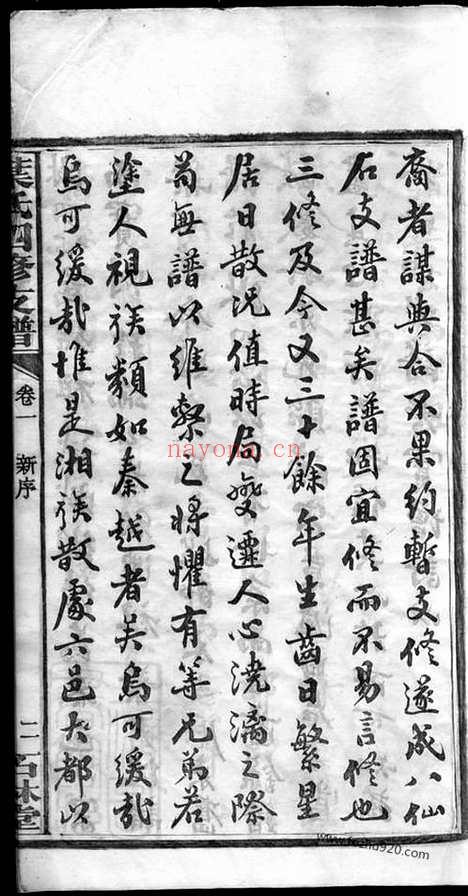 裔者謀與合不果約暫支修遂成八仙
石支譜甚矣譜固宜修而不易言修也
三修及今又三十餘年生齒日繁星
居日散況值時局變遷人心澆漓之際
苟無譜以維繫之將懼有等兄弟若
塗人視族類如秦越者矣烏可緩哉
烏可緩哉惟是湘族散處六邑大都以
葉氏四修支譜
卷一 新序
二 石林堂
nayona.cn